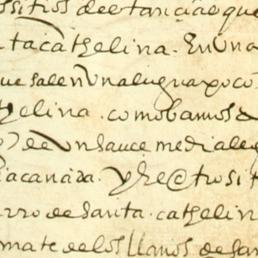 ssitios de estancia e que
ta cathelina. En una
que sale en una lagua poco
helina. como bamos a
de un sauce media leg
la canada. Y he otro sit
rro de santa. cathelin
mate de los llanos de san